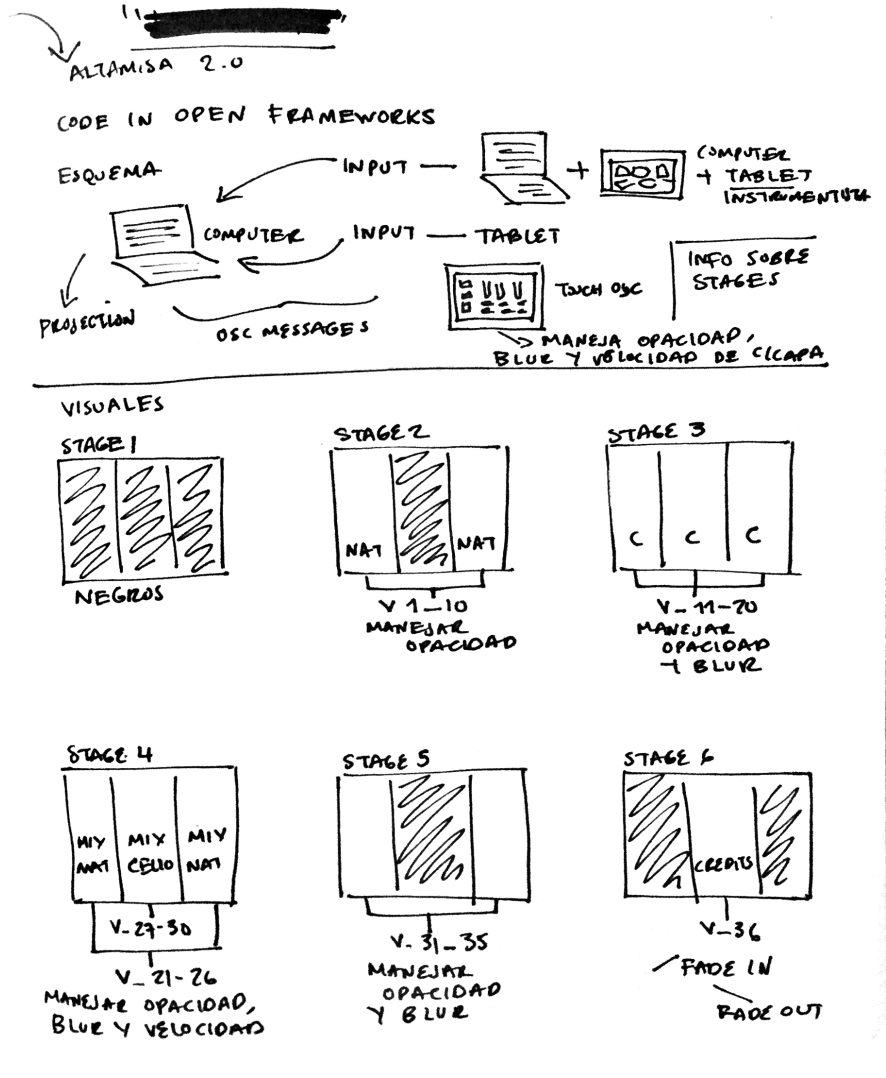 ALTAMISA 2.0
CODE IN OPEN FRAMEWORKS
ESQUEMA
INPUT
+
COMPUTER
+ TABLET
INSTRUMENTISTA
COMPUTER
INPUT — TABLET
INFO SOBRE
STAGES
TOUCH OSC
PROJECTION
OSC MESSAGES
MANEJA OPACIDAD,
BLUR Y VELOCIDAD DE C/CAPA
VISUALES
STAGE 1
NEGROS
STAGE 2
NAT
NAT
V 1_10
MANEJAR
OPACIDAD
STAGE 3
C C C
V_ 11-20
MANEJAR
OPACIDAD
Y BLUR
STAGE 4
MIX
NAT
MIX
CELLO
MIX
NAT
V_27-30
V_21-26
MANEJAR OPACIDAD,
BLUR Y VELOCIDAD
STAGE 5
V_31_35
MANEJAR
OPACIDAD
Y BLUR
STAGE 6
CREDITS
V_36
FADE IN
FADE OUT